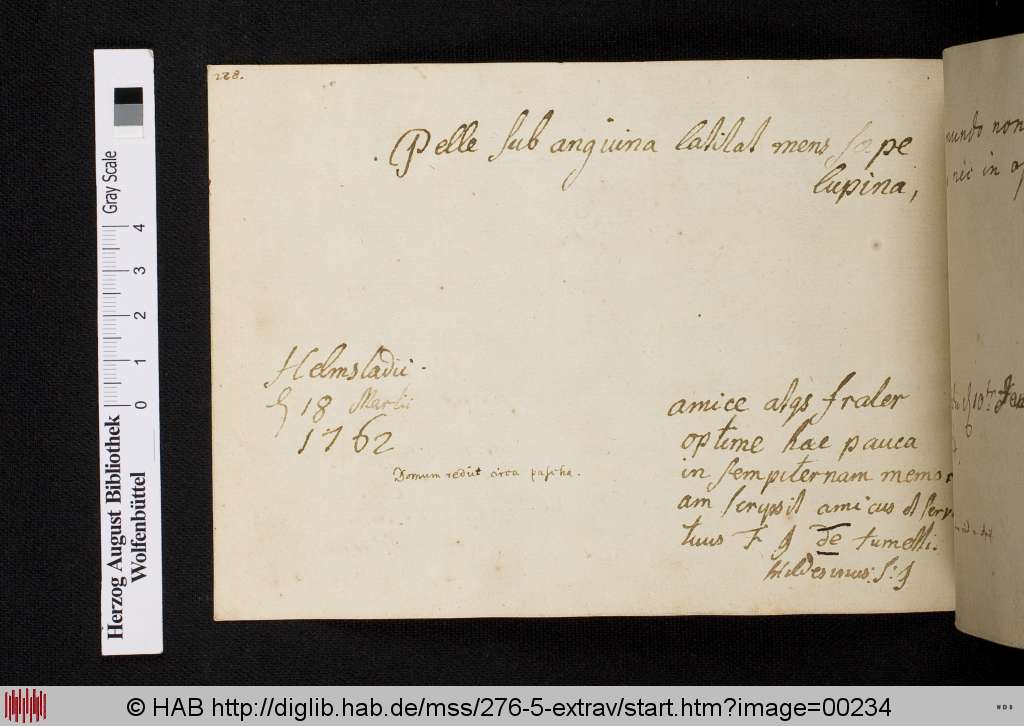 228.
Pelle sub anguina latitat mens sæpe
lupina,
Helmstadii.
18 Martii
1762
Domum rediit circa pascha.
amice atqs frater
optime hæc pauca
in sempiternam memori
am scripsit amicus et serv
tuus F J de tumelli.
Hildesinus: S: J
mundo non
nec in
Herzog August Bibliothek
Wolfenbüttel
Gray Scale
0 1 2 3 4
© HAB http://diglib.hab.de/mss/276-5-extrav/start.htm?image=00234
HAB